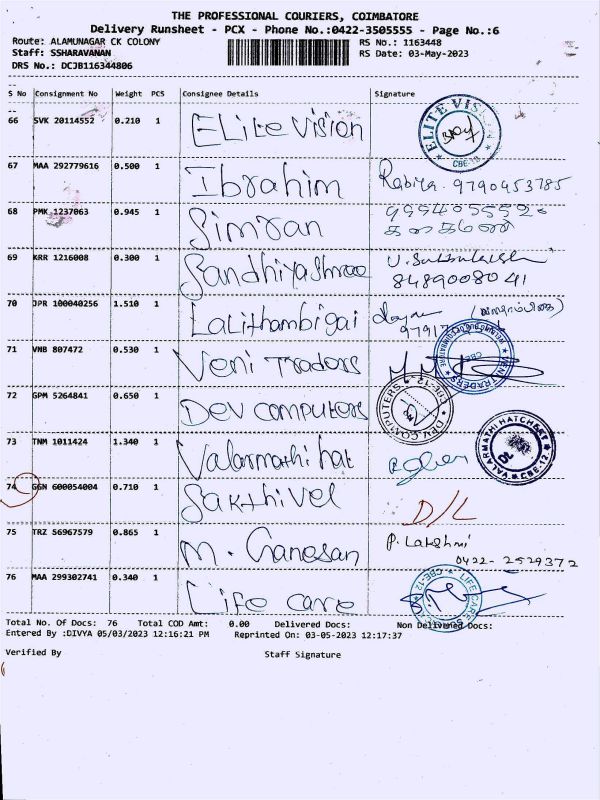 THE PROFESSIONAL COURIERS, COIMBATORE
Delivery Runsheet - PCX - Phone No.:0422-3505555 - Page No.:6
Route: ALAMUNAGAR CK COLONY RS No.: 1163448
Staff: SSHARAVANAN RS Date: 03-May-2023
DRS No.: DCJB116344806
S No Consignment No Weight PCS Consignee Details Signature
66 SVK 20114552 0.210 1 Elite Vision ELITE VISION CBE-12
67 MAA 292779616 0.500 1 Ibrahim Rabiya. 9790453785
68 PMK 1237063 0.945 1 Simran
69 KRR 1216008 0.300 1 Sandhiyashree 8489008041
70 JPR 100040256 1.510 1 Lalithambigai
71 VNB 807472 0.530 1 Veni Traders VENI TRADERS CBE-12
72 GPM 5264841 0.650 1 Dev Computers DEV COMPUTERS CBE-12
73 TNM 1011424 1.340 1 Valarmathi hat VALARMATHI HATCHERY CBE-12
74 GGN 600054004 0.710 1 Sakthivel D/L
75 TRZ 56967579 0.865 1 M. Ganesan P. Lakshmi
0422- 2529372
76 MAA 299302741 0.340 1 Life care LIFE CARE CBE-12
Total No. Of Docs: 76 Total COD Amt: 0.00 Delivered Docs: Non Delivered Docs:
Entered By :DIVYA 05/03/2023 12:16:21 PM Reprinted On: 03-05-2023 12:17:37
Verified By Staff Signature